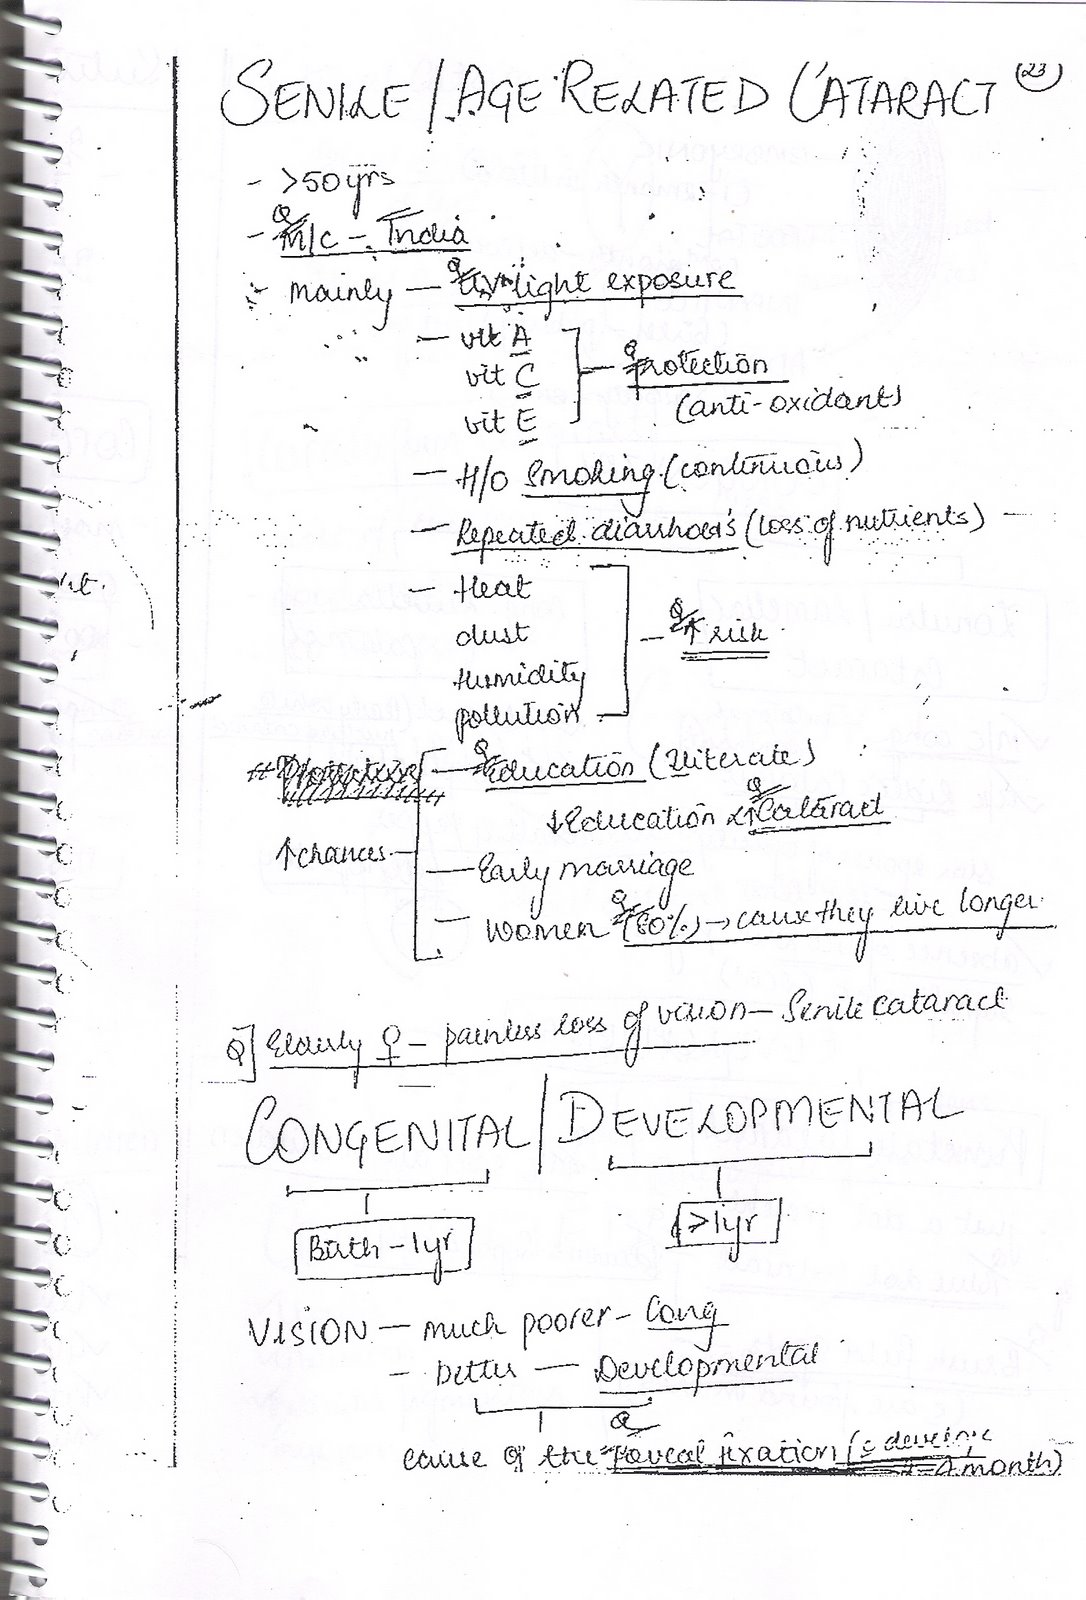 SENILE / AGE RELATED CATARACT (23)
- >50 yrs
- Q M/C - India
- mainly — Q UV light exposure
- vit A
vit C — Q protection
(anti-oxidant)
vit E
- H/O Smoking (continuous)
- Repeated diarrhoea's (loss of nutrients)
- Heat
dust — Q ↑ risk
Humidity
pollution
# — Q Education (Illiterate)
↓ Education Q ↑ Cataract
↑ chances - — Early marriage
- Women Q (60%) → cause they live longer
Q] Elderly ♀ - painless loss of vision — Senile cataract
CONGENITAL / DEVELOPMENTAL
Birth - 1yr >1yr
VISION — much poorer - Cong
- better — Developmental
Q
cause of the "Foveal fixation (
month)